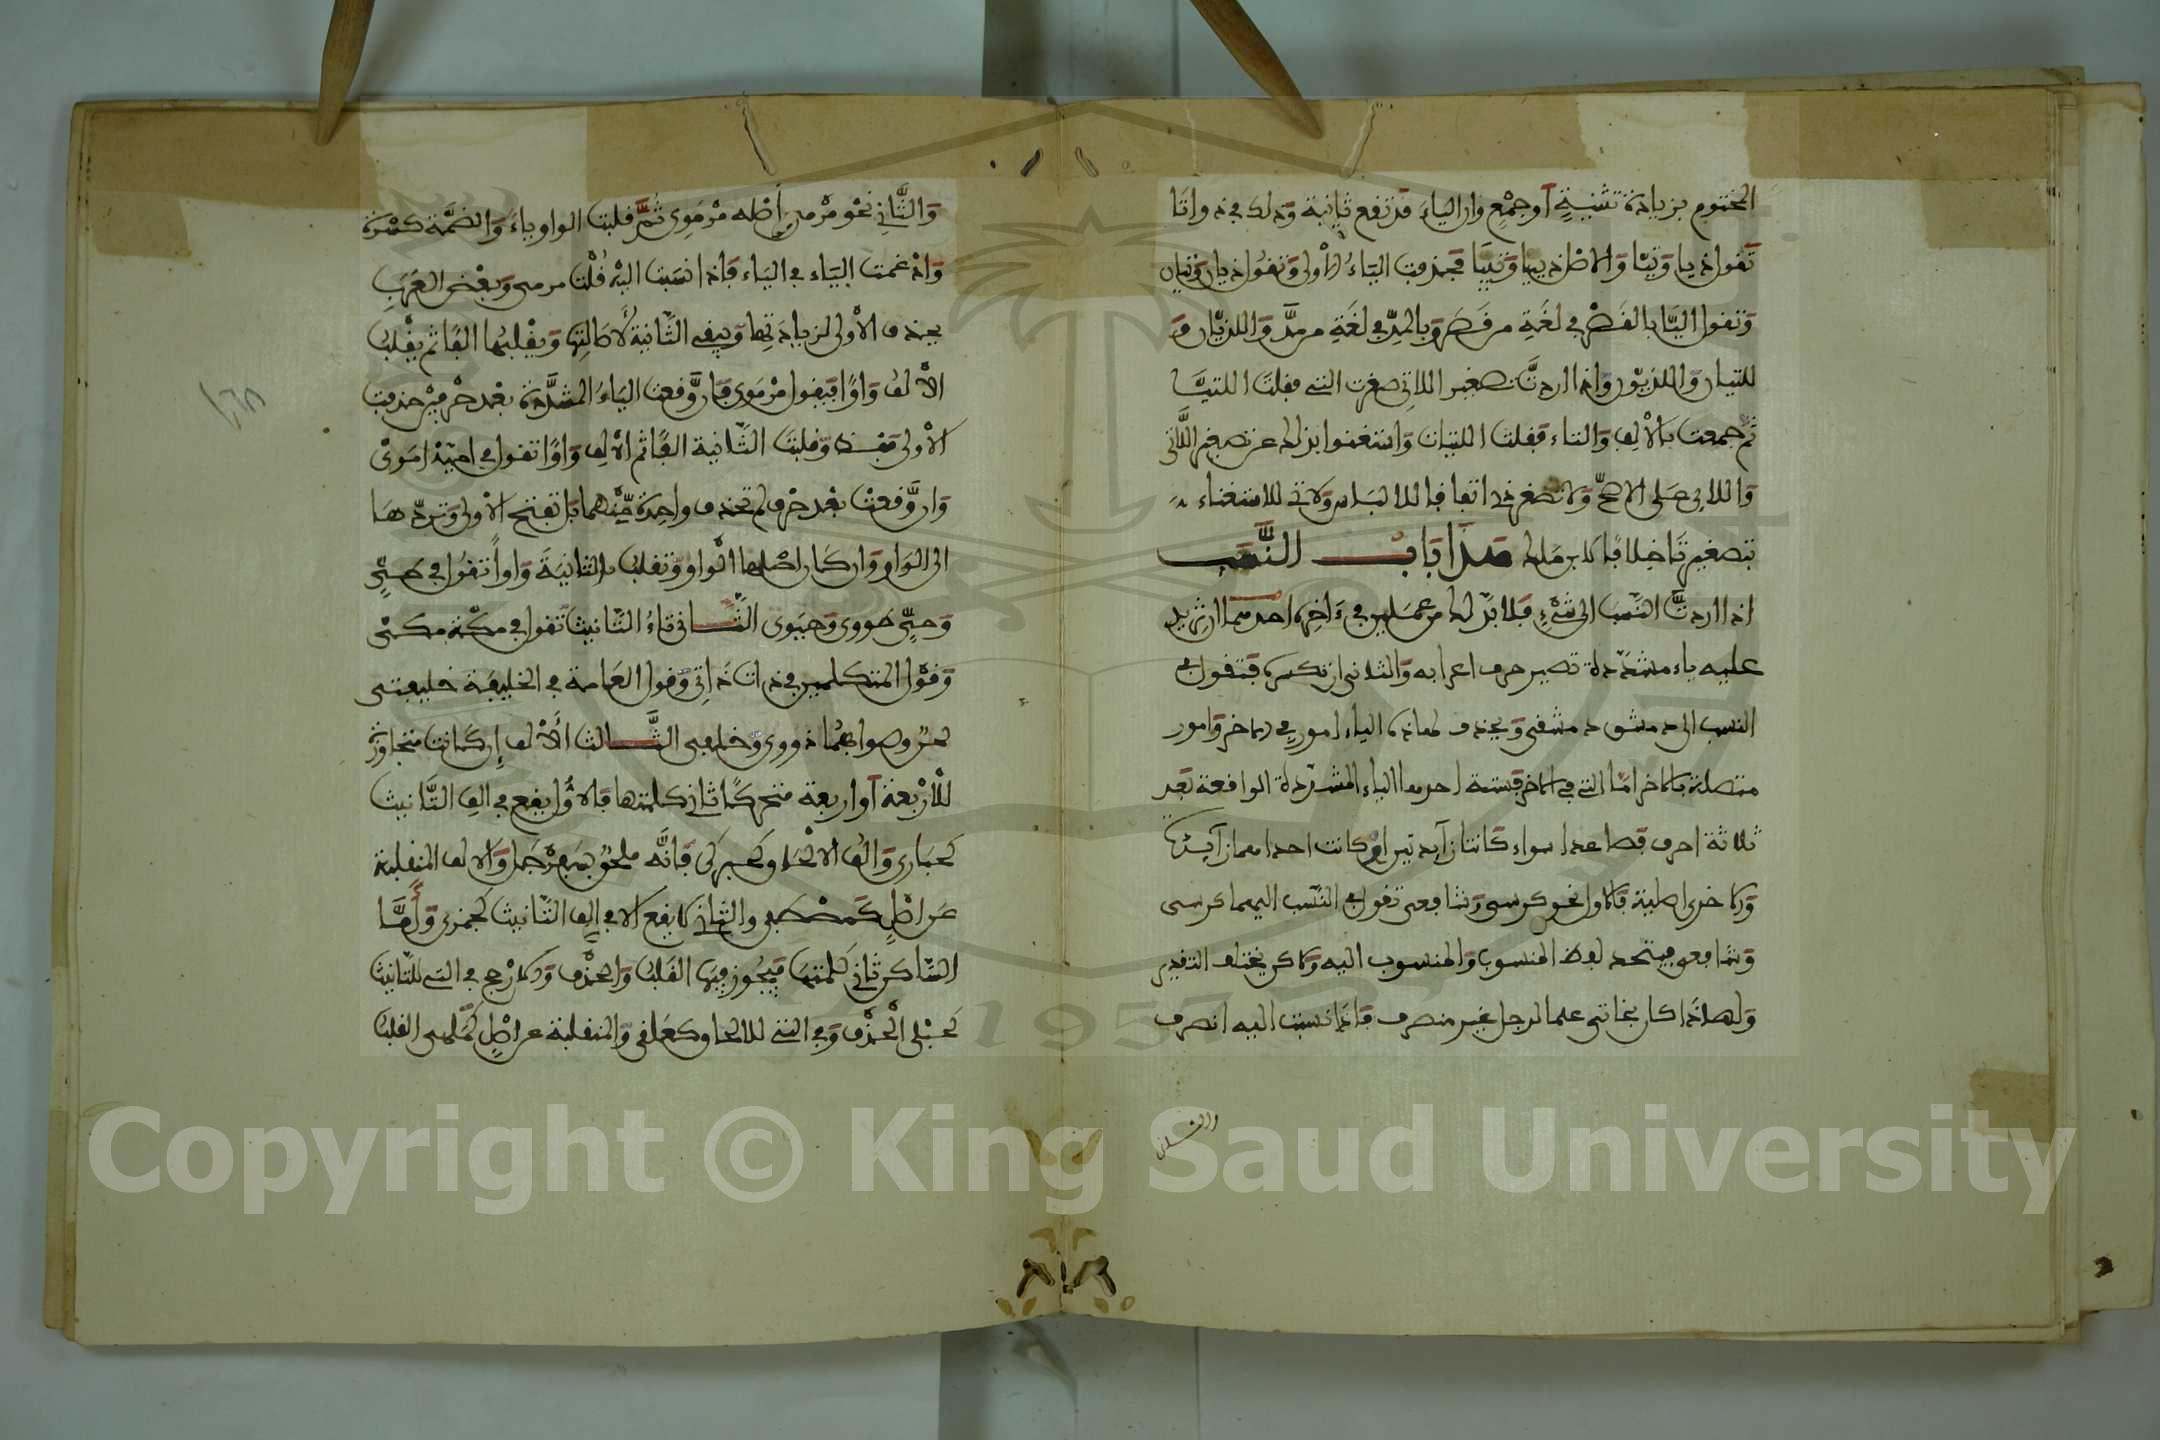 المختوم بزيادة تثنية أو جمع وان الياء قد تقع ثانية وذلك في ذا وتا
تقول ذيا وتيا والاصل ذييا وتييا فحذفت الياء الأولى وتقول ذيان وتيان
وتقول اليا بالقصر في لغة من قصر وبالمد في لغة من مد واللذيان و
للتيان واللذيون واذا اردت تصغير اللاتي صغرت التي فقلت اللتيا
ثم جمعت بالألف والتاء فقلت اللتيات واستغنوا بذلك عن تصغير اللائي
واللاي على الاصح ولا تصغر ذي اتفاقا للالباس ولا تي للاستغناء
بتصغير تا خلافا لابن مالك هذا باب النسب
اذا اردت النسب الى شيء فلا بد لك من عملين في ءاخره احدهما ان تزيد
عليه ياء مشددة تصير حرف اعرابه والثاني ان تكسره فتقول في
النسب الى دمشق دمشقي ويحذف لهاذه الياء امور في الاخر وامور
متصلة بالاخر امّا التي في الاخر فستة احدها الياء المشددة الواقعة بعد
ثلاثة احرف فصاعدا سواء كانتا زايدتين او كانت احداهما زايدة
والاخرى اصلية فالاول نحو كرسي وشافعي تقول في النسب اليهما كرسي
وشافعي فيتحد لفظ المنسوب والمنسوب اليه ولاكن يختلف التقدير
ولهاذا كان بخاتي علما لرجل غير منصرف فاذا نسبت اليه انصرف
والثاني
والثاني نحو مرمي أصله مرموي ثم قلبت الواو ياء والضمة كسرة
وادغمت الياء في الياء فاذا نسبت اليه قلت مرمي وبعض العرب
يحذف الأولى لزيادتها ويبقي الثانية لأصالتها ويقلبها الفا ثم يقلب
الألف واوا فيقول مرموي فان وقعت الياء المشددة بعد حرفين حذفت
الأولى فقط وقلبت الثانية الفا ثم الالف واوا تقول في امية اموي
وان وقعت بعد حرف لم تحذف واحدة منهما بل تفتح الأولى وتردها
الى الواو وان كان اصلها الواو وتقلب الثانية واوا تقول في طي
وحي طووي وحيوي الثاني تاء التانيث تقول في مكة مكي
وقول المتكلمين في ذات ذاتي وقول العامة في الخليفة خليفتي
لحن وصوابهما ذووي وخليفي الثالث الألف إن كانت متجاوزة
للأربعة أو اربعة متحركا ثاني كلمتها فالاول يقع في الف التانيث
كحبارى والف الالحاق كحبركى فانه ملحق بسفرجل والالف المنقلبة
عن اصل كمصطفى والثاني لا يقع الا في الف التانيث كجمزى وأما
الساكن ثاني كلمتها فيجوز فيها القلب والحذف والارجح في التي للتانيث
كحبلى الحذف وفي التي للالحاق كعلقى والمنقلبة عن اصل كملهى القلب